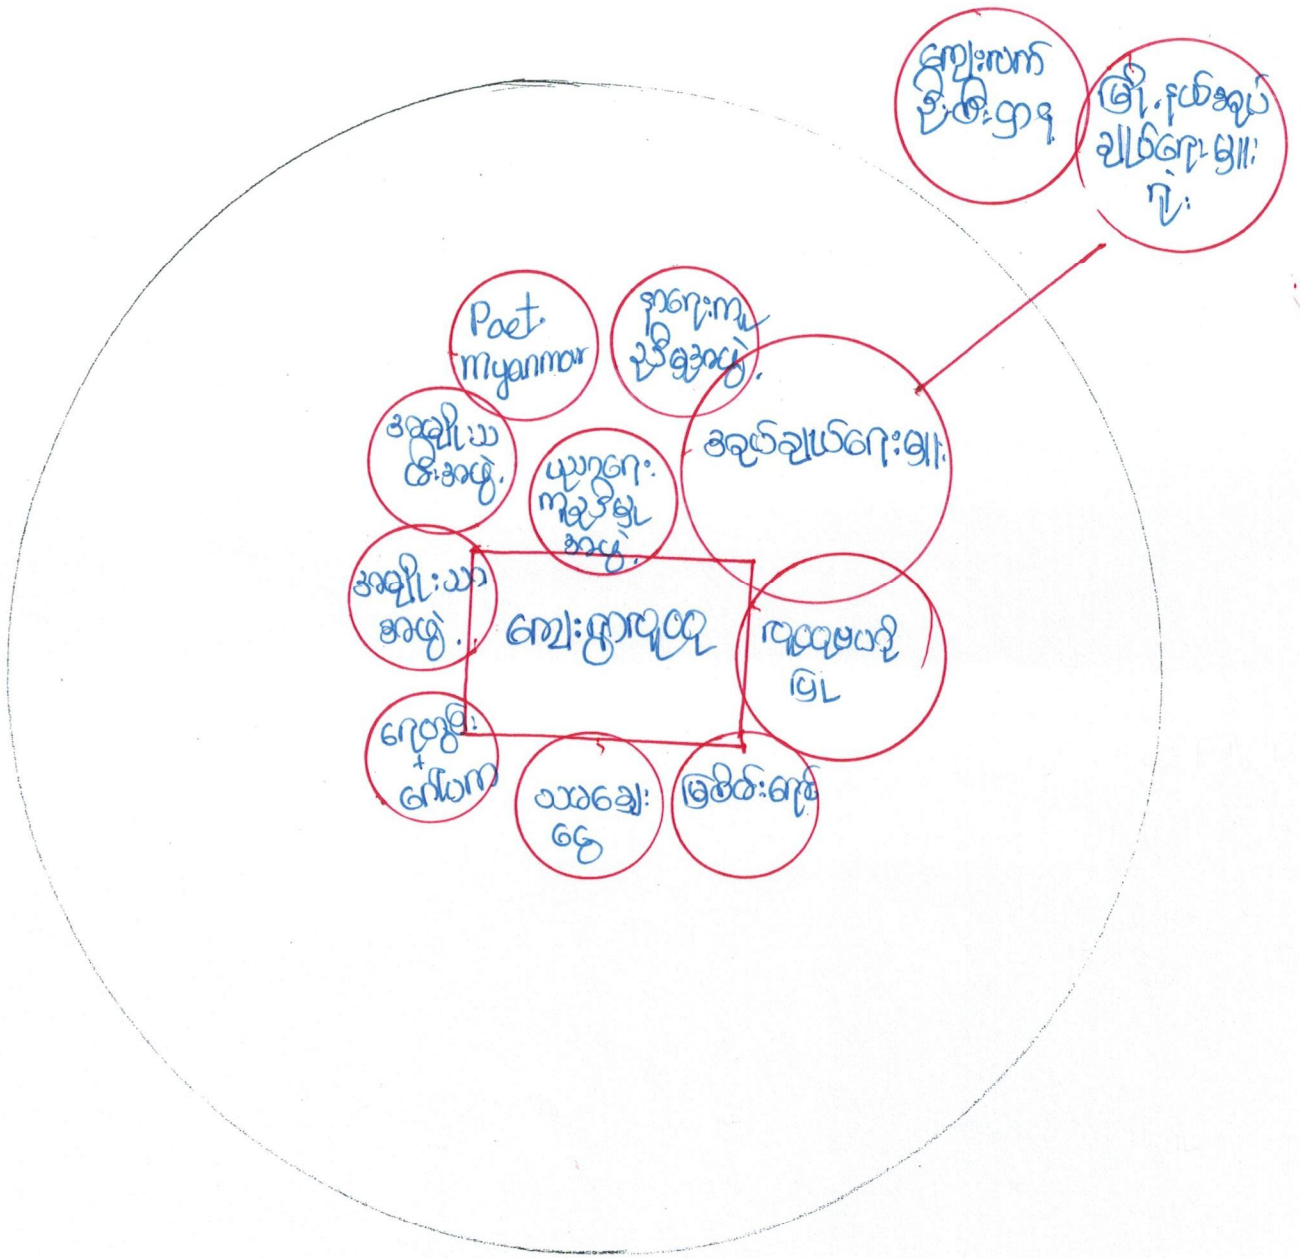 ကျေးလက်
ဦးစီးဌာန
မြို့နယ်အုပ်
ချုပ်ရေးမှူး
ရုံး
Pact
myanmar
နာရေးကူ
ညီမှုအဖွဲ့
အမျိုးသ
မီးအဖွဲ့
ပညာရေး
ကူညီမှု
အဖွဲ့
အုပ်ချုပ်ရေးမှူး
အမျိုးသား
အဖွဲ့
ကျေးရွာလူထု
လူထုဗဟိုပြု
ရေတွင်း
+
သာရေး
ငွေ
မြစိမ်းရောင်